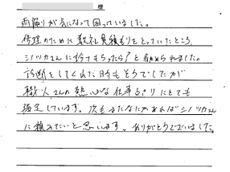 様
雨漏りが気になって困っていました。
修理のために数社見積もりをとっていたところ、
シノヅカさんに行ってもらったら？と勧められました。
診断をしてくれた日もそうでしたが
職人さんの熱心な仕事ぶりにとても
満足しています。次もなにかあればシノヅカさん
に頼みたいと思います。ありがとうございました。